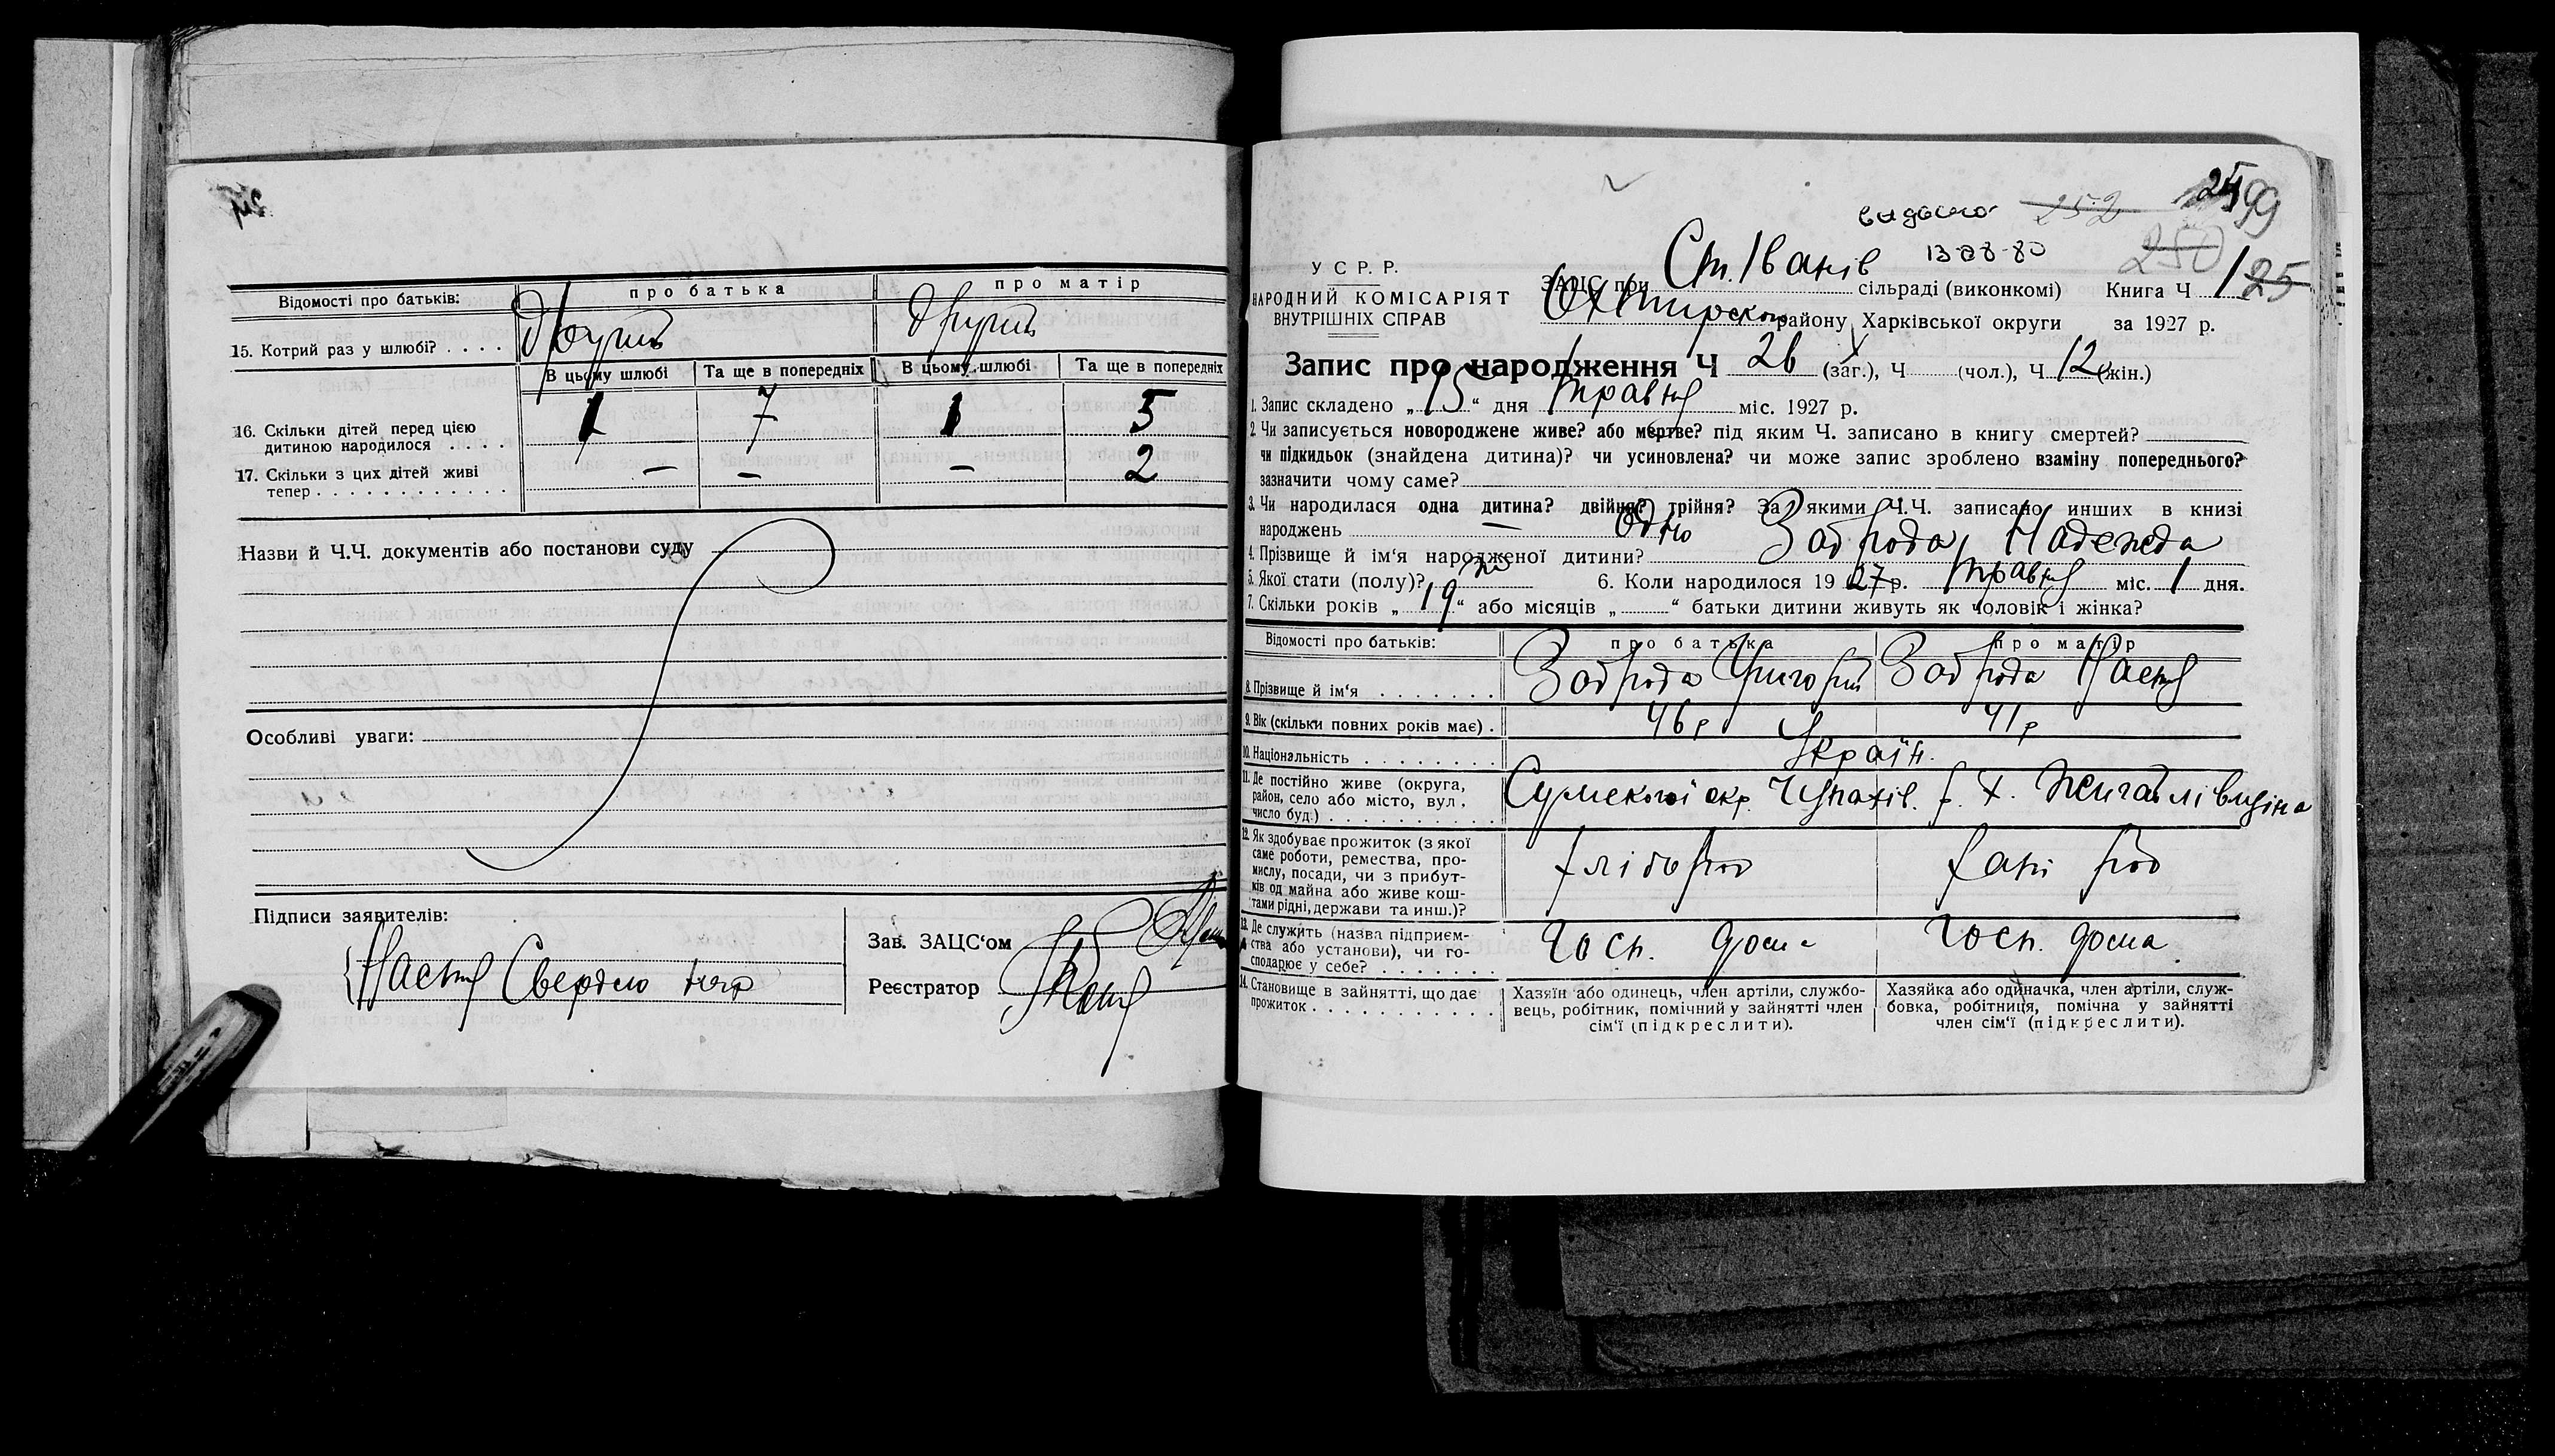 Відомості про батьків:
про батька
про матір
15. Котрий раз у шлюбі? . . . .
другий
другий
В цьому шлюбі
Та ще в попередніх
В цьому шлюбі
Та ще в попередніх
16. Скільки дітей перед цією
дитиною народилося . . . .
1
7
1
5
17. Скільки з цих дітей живі
тепер . . . . . . . . . . . .
—
—
—
2
Назви й Ч.Ч. документів або постанови суду
Особливі уваги:
Підписи заявителів:
Настя
Зав. ЗАЦС‘ом
Реєстратор
видано
252
13-08-80
99
250
У С Р. Р.
НАРОДНИЙ КОМІСАРІЯТ
ВНУТРІШНІХ СПРАВ
ЗАЦС при Ст. Іванів сільраді (виконкомі) Книга Ч 1 25
Охтирского району Харківської округи за 1927 р.
Запис про народження Ч 26 (заг.), Ч (чол.), Ч 12 (жін.)
1. Запис складено „ 15 “ дня травня міс. 1927 р.
2. Чи записується новороджене живе? або мертве? під яким Ч. записано в книгу смертей?
чи підкидьок (знайдена дитина)? чи усиновлена? чи може запис зроблено взаміну попереднього?
зазначити чому саме?
3. Чи народилася одна дитина? двійня? трійня? За якими Ч.Ч. записано инших в книзі
народжень Одно
4. Прізвище й ім‘я народженої дитини? Заброда Надежда
5. Якої стати (полу)? ж 6. Коли народилося 19 27 р. травня міс. 1 дня.
7. Скільки років „ 19 “ або місяців „ “ батьки дитини живуть як чоловік і жінка?
Відомості про батьків:
про батька
про матір
8. Прізвище й ім‘я . . . . . . .
Заброда Григорій
Заброда Настя
9. Вік (скільки повних років має) .
46 р
41 р
10. Національність . . . . . . . .
Україн.
11. Де постійно живе (округа,
район, село або місто, вул.
число буд.) . . . . . . . . . .
Сумської окр. Чупахів. р. х. Жигайлівщина
12. Як здобуває прожиток (з якої
саме роботи, ремества, про-
мислу, посади, чи з прибут-
ків од майна або живе кош-
тами рідні, держави та инш.)?
хлібороб
хаті роб
13. Де служить (назва підприєм-
ства або установи), чи го-
сподарює у себе? . . . . . . .
госп. дома
госп. дома
14. Становище в зайнятті, що дає
прожиток . . . . . . . . . . .
Хазяїн або одинець, член артіли, службо-
вець, робітник, помічний у зайнятті член
сім‘ї (підкреслити).
Хазяйка або одиначка, член артіли, служ-
бовка, робітниця, помічна у зайнятті
член сім‘ї (підкреслити).